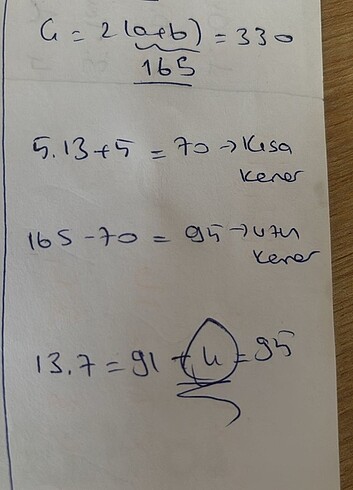 Ç = 2(a+b) = 330
165
5.13+5 = 70 → Kısa
kenar
165 - 70 = 95 → uzun
kenar
13.7 = 91 + 4 = 95